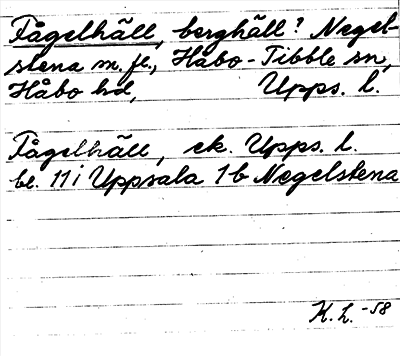 Fågelhäll, berghäll? Negel-
stena m. fl., Håbo-Tibble sn,
Håbo hd, Upps. l.
Fågelhäll, ek. Upps. l.
bl. 11 i Uppsala 1 b Negelstena
H. L. -58